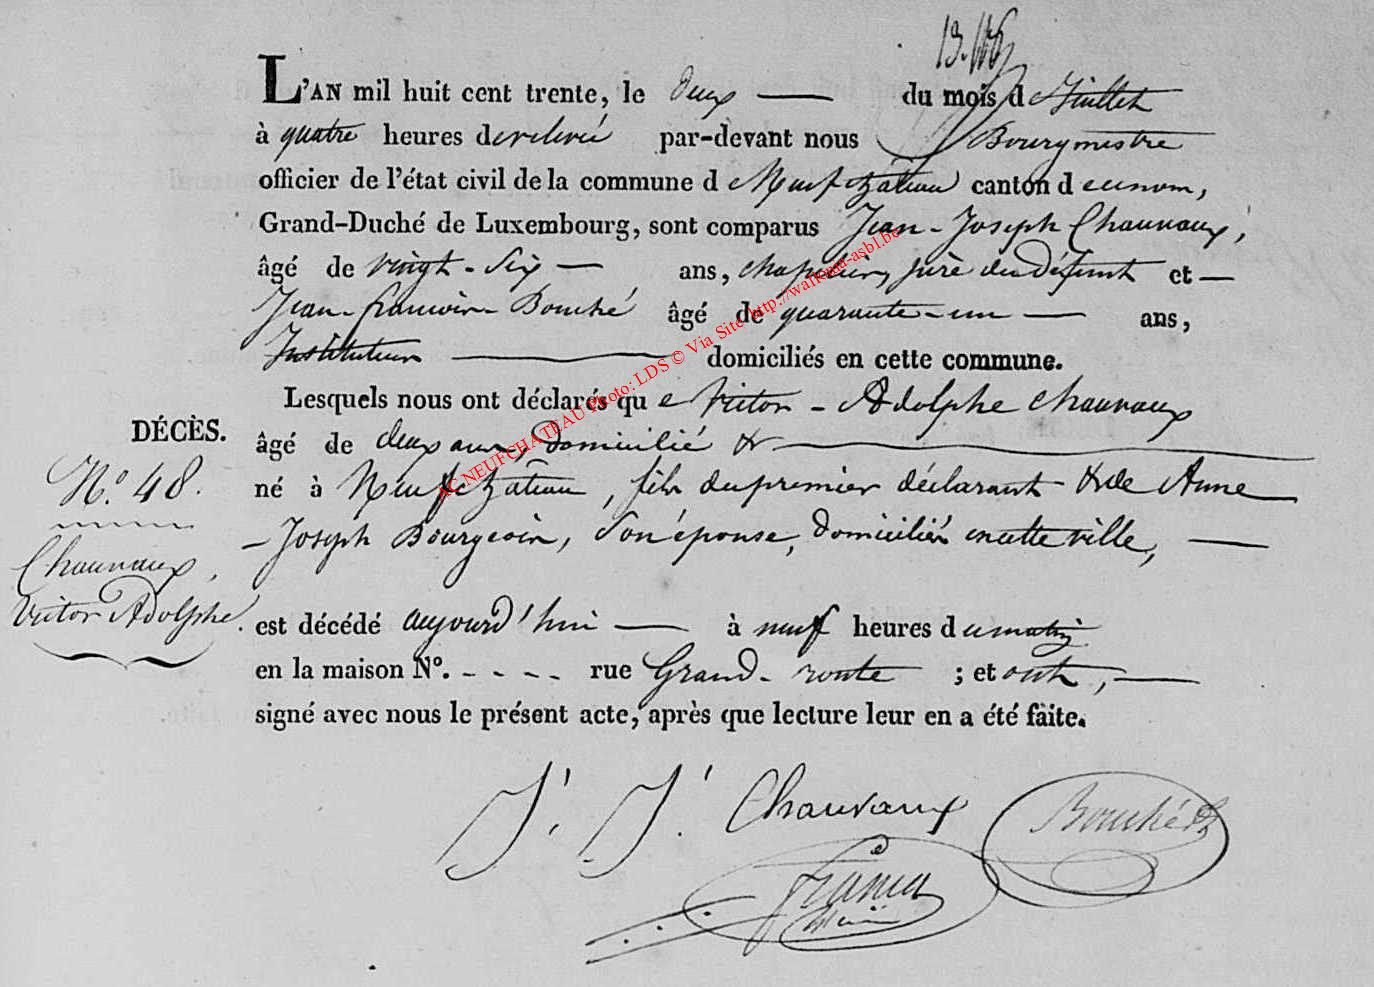 L'AN mil huit cent trente, le deux du mois de Juillet
à quatre heures de relevée par-devant nous Bourgmestre
officier de l'état civil de la commune d Neufchateau canton d eunom,
Grand-Duché de Luxembourg, sont comparus Jean-Joseph Chauvaux,
âgé de vingt-six ans, chapelier, père du défunt et
Jean-francois Bouché âgé de quarante-un ans,
Instituteur domiciliés en cette commune.
Lesquels nous ont déclarés qu e Victor-Adolphe Chauvaux
DÉCÈS.
âgé de deux ans, domicilié &
N.º 48.
né à Neufchâteau, fils du premier déclarant & de Anne
-Joseph Bourgeois, son épouse, domiciliés en cette ville,
Chauvaux,
Victor Adolphe.
est décédé aujourd'hui à neuf heures du matin
en la maison Nº. - - - - rue Grand-route ; et ont,
signé avec nous le présent acte, après que lecture leur en a été faite.
J. J. Chauvaux
Bouché
AC NEUFCHATEAU Photo: LDS © Via Site http://walkinia-asbl.be